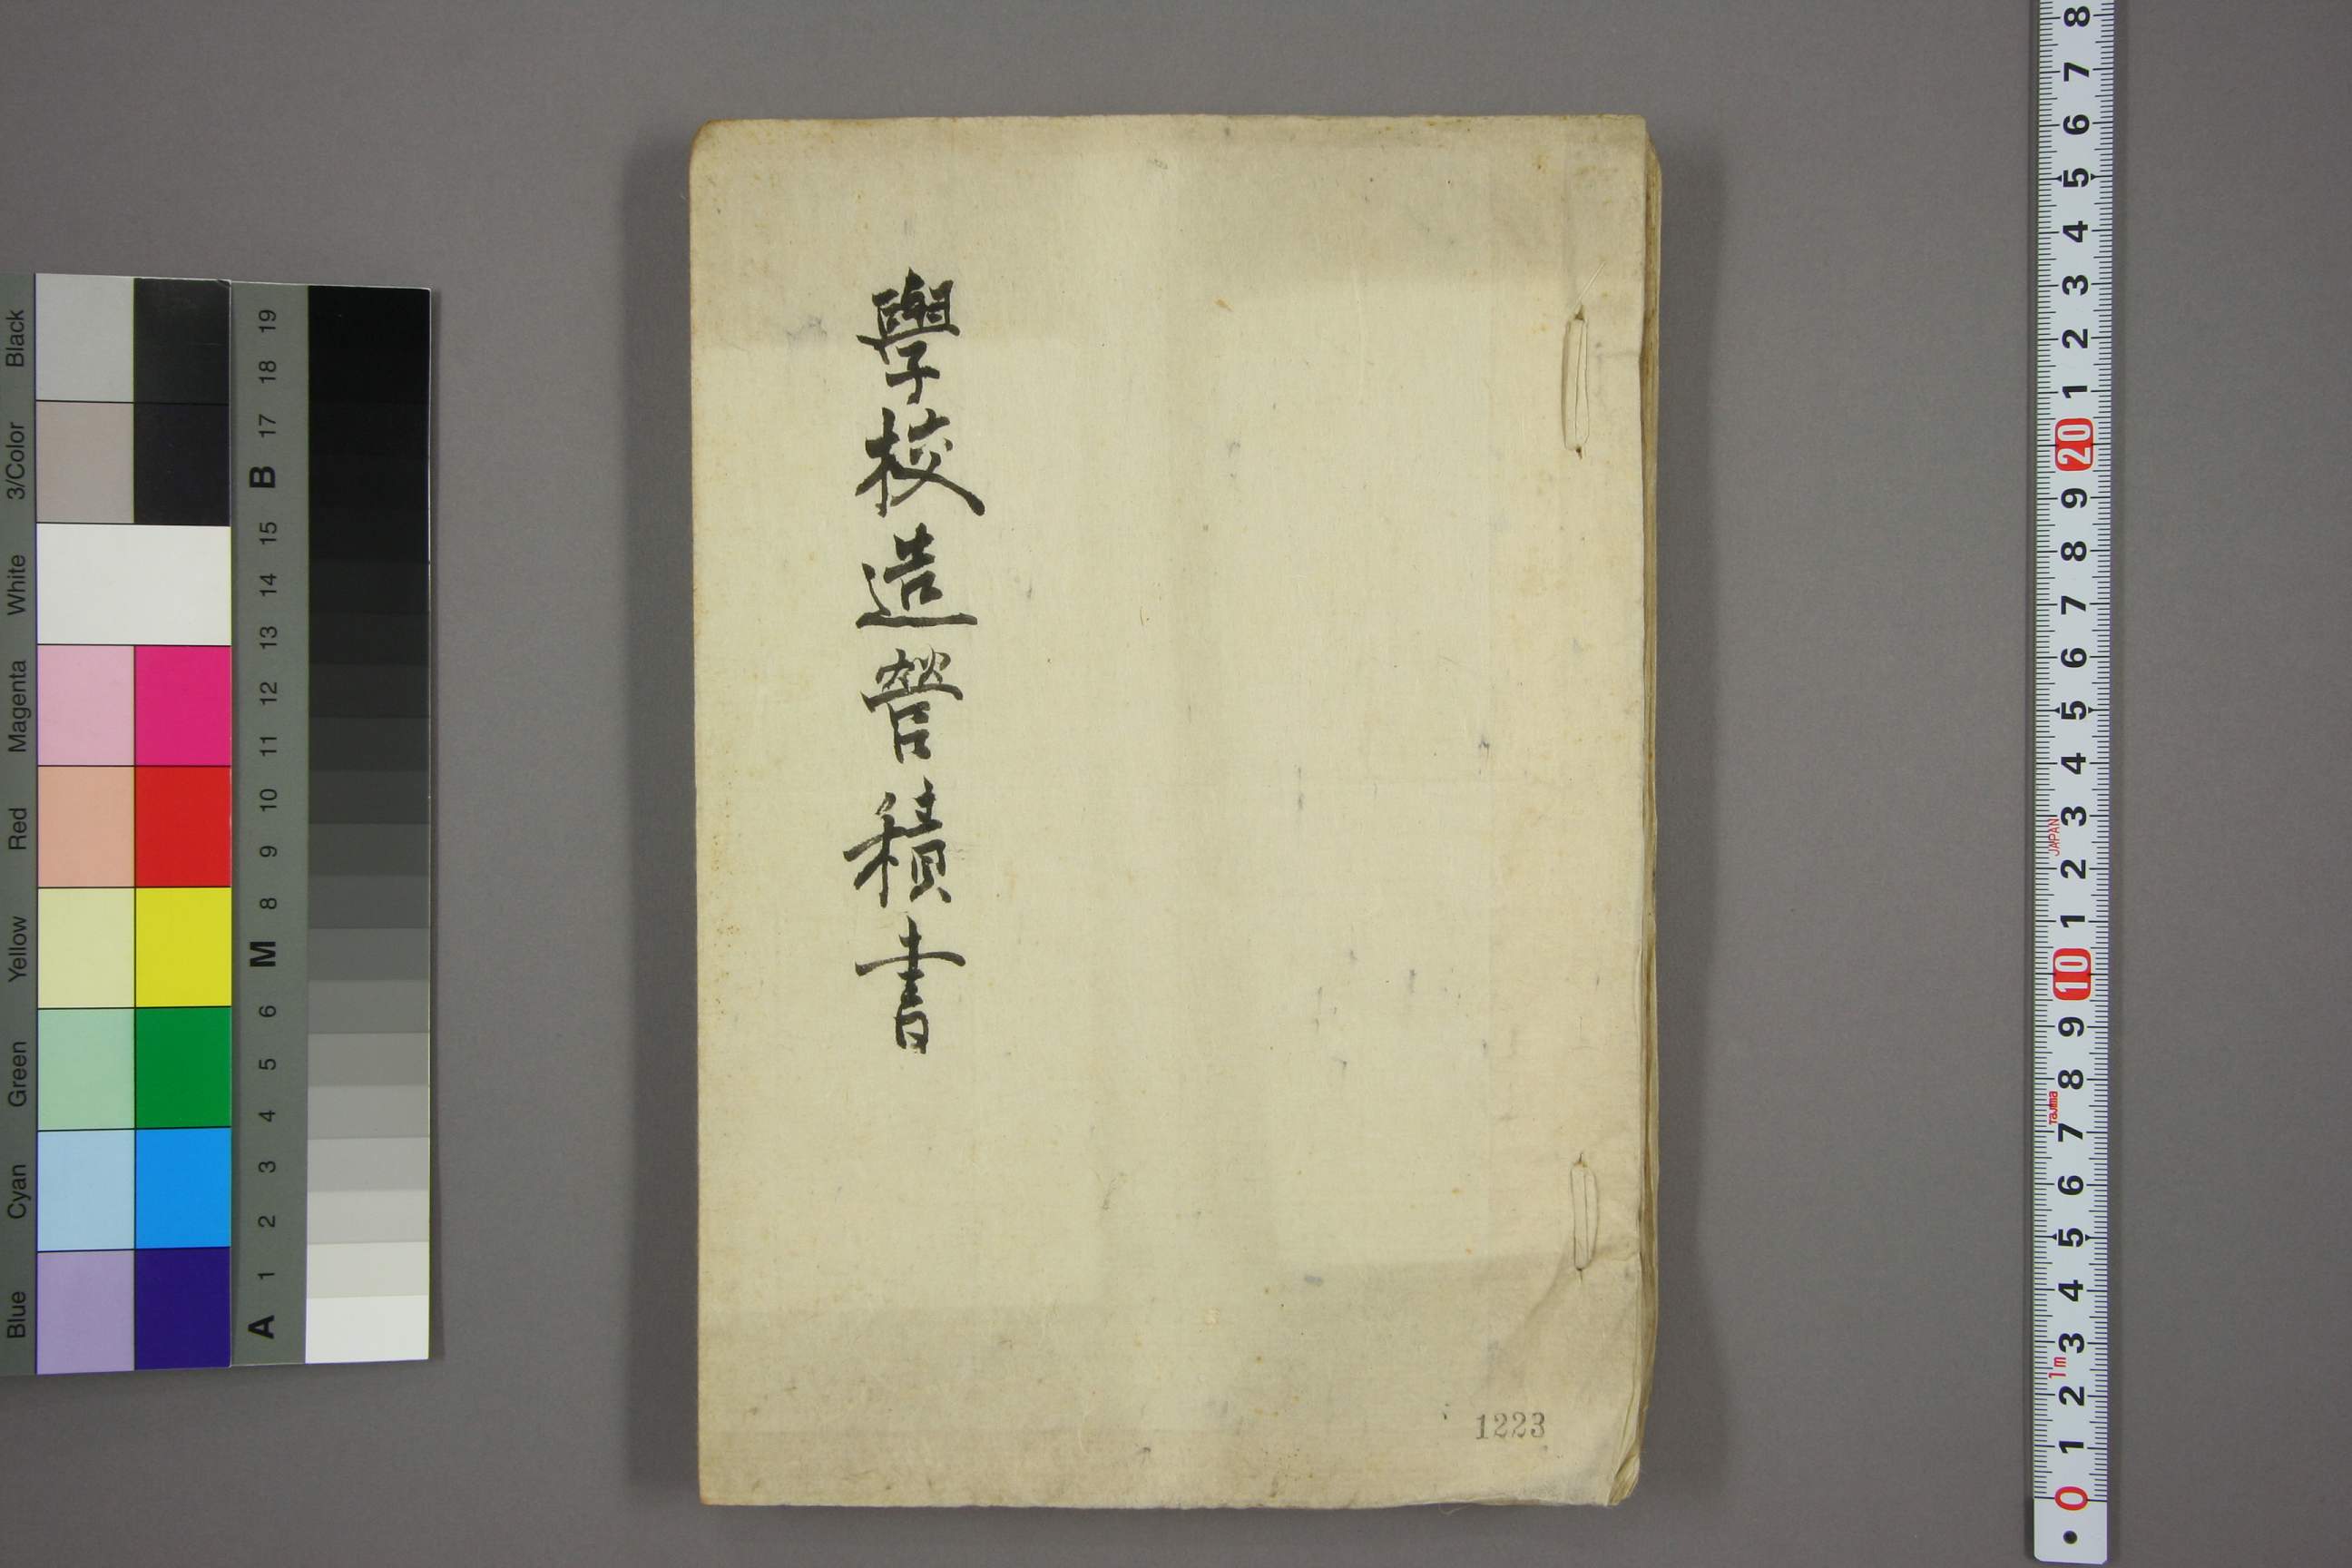 學校造營積書
1223
Black
3/Color
White
Magenta
Red
Yellow
Green
Cyan
Blue
19
18
17
B
15
14
13
12
11
10
9
8
M
6
5
4
3
2
1
A
8
7
6
5
4
3
2
1
20
9
8
7
6
5
4
3
JAPAN
2
1
10
9
8
Tajima
7
6
5
4
3
1m
2
1
0